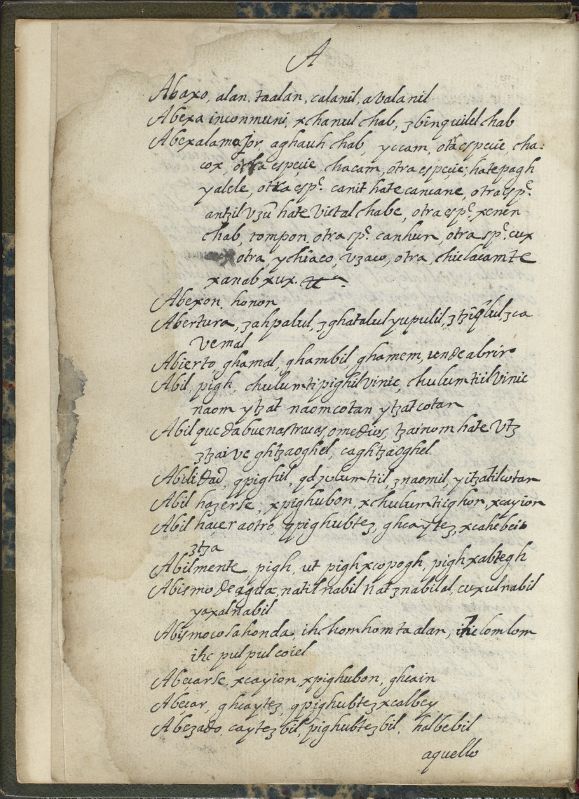 A
Abaxo, alan, taalan, calanil, avalanil
Abexa in conmuni, xchanul chab, zbinquilel chab
Abexa lamajor, aghauh chab yccam, otra especie cha=
cox, otra especie, chacam, otra especie, hate pagh
yalele, otra esp.e canit hate cancane, otra esp.e
antzil vzu hate vistal chabe, otra esp.e xenen
chab, rompon, otra sp.e canhun, otra sp.e cux
otra, ychiaco, vzaco, otra, chielacamte
xanabxux.
Abexon, honon
Abertura, zahpalul, zghatalul yupulil,
vemal
Abierto, ghamal, ghambil ghamem, ven de abrir
Abil, pigh, chulumti pighil vinic, chulumtiil vinic
naom ytzat naomcotan ytzatcotan
Abil que da buenas traças, o medios, tzainom hate vtz
ztzaive ghtzaoghel, caghtzaoghel
Abilidad, qpighil, qchulumtiil, znaomil, yitzatilcotan
Abil hazerse, xpighubon, xchulumticghon, xcayion
Abil hacer a otro, qpighubtez, ghcaytez, xcahebcin
ztza
Abilmente, pigh, ut pighxcopogh, pighxabtegh
Abismo de agua, natilnabil natznabilal, cuxulnabil
yaxalnabil
Abismo cosa honda, ihc homhom ta alan, ihc lomlom
ihc pulpul coiel
Abeiarse, xcayion xpighubon, ghcain
Abeiar, ghcaytez, qpighubtez xcalbey
Abezado, caytezbil, pighubtezbil, halbebil
aquello